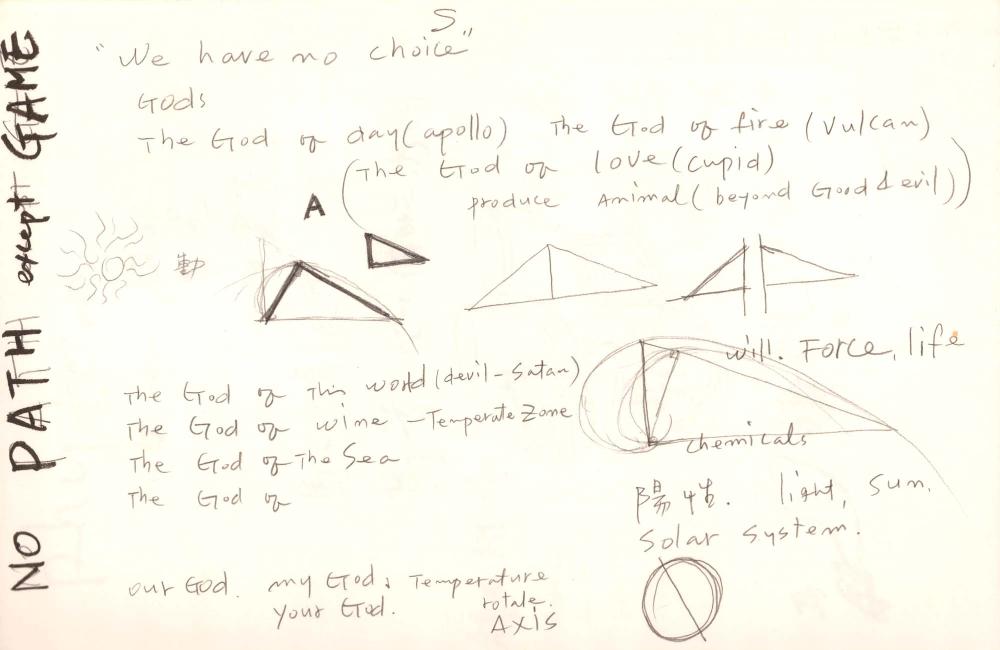 NO PATH except GAME
S
"We have no choice"
Gods
The God of day(apollo) The God of fire (Vulcan)
(The God of love(cupid)
produce Animal(beyond Good & evil))
A
動
will. Force, life
The God of This world(devil-Satan)
The God of wine -Temperate Zone
The God of The Sea
The God of
chemicals
陽性. light, sun,
Solar system.
our God. my God. Temperature
your God. rotate.
AXIS